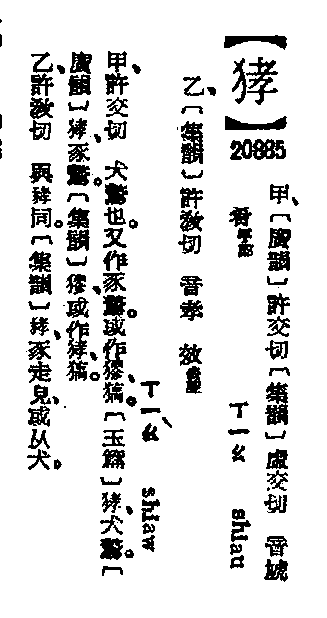 【㹲】
20885
甲、〔廣韻〕許交切〔集韻〕虛交切 音虓
肴平聲 ㄒㄧㄠ shiau
乙、〔集韻〕許敎切 音孝 效去聲
ㄒㄧㄠˋ shiaw
甲、許交切 犬驚也。又作豕驚。或作㺒、。〔玉篇〕㹲、犬驚。〔
廣韻〕㹲、豕驚。〔集韻〕㺒、或作㹲、。
乙、許敎切 與同。〔集韻〕、豕走皃、或从犬。